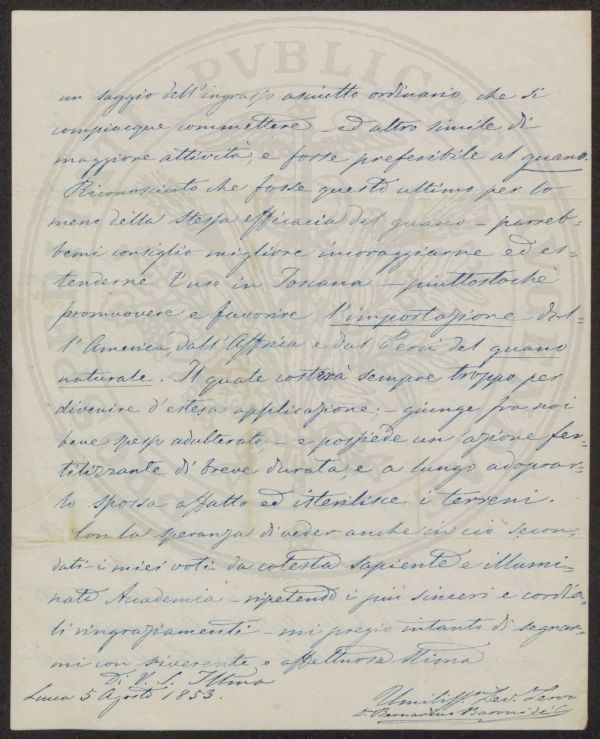 un saggio dell'ingrasso asciutto ordinario, che si
compiacque commettere – ed altro simile di
maggiore attività, e forse preferibile al guano.
Riconosciuto che fosse questo ultimo per lo
meno della stessa efficacia del guano – parreb-
bemi consiglio migliore incoraggiarne ed es-
tenderne l'uso in Toscana – piuttostochè
promuovere e favorire l'importazione dal-
l'America, dall'Affrica e dal Perù del guano
naturale. Il quale costerà sempre troppo per
divenire d'estesa applicazione; – giunge fra noi
bene spesso adulterato; – e possiede un'azione fer-
tilizzante di breve durata, e a lungo adoprar-
lo spossa affatto ed isterilisce i terreni.
Con la speranza di veder anche in ciò secon-
dati i miei voti da cotesta sapiente e illumi-
nata Accademia – ripetendo i più sinceri e cordia-
li ringraziamenti – mi pregio intanto di segnar-
mi con riverente e affettuosa stima
Di V. S. Illma
Lucca 5 Agosto 1853.
Umiliss. Dev. Servo
D. Bernardino Baroni
PVBLICA